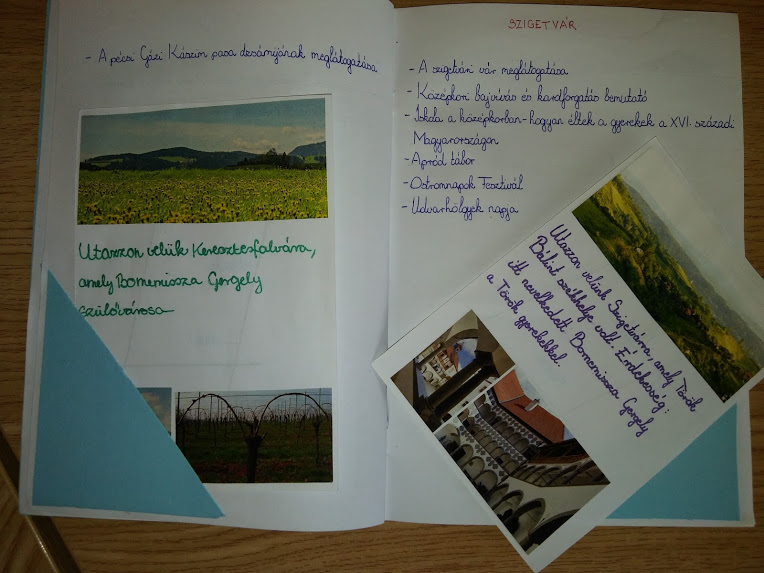 - A pécsi Gázi Kászim pasa dzsámijának meglátogatása
Utazzon velük Keresztesfalvára,
amely Bornemissza Gergely
szülővárosa
SZIGETVÁR
- A szigetvári vár meglátogatása
- Középkori bajvívás és kardforgatás bemutató
- Iskola a középkorban - hogyan éltek a gyerekek a XVI. századi
Magyarországon
- Apród tábor
- Ostromnapok Fesztivál
- Udvarhölgyek napja
Utazzon velünk Szigetvárra, amely Török
Bálint székhelye volt. Érdekesség:
itt nevelkedett Bornemissza Gergely
a Török gyerekekkel.